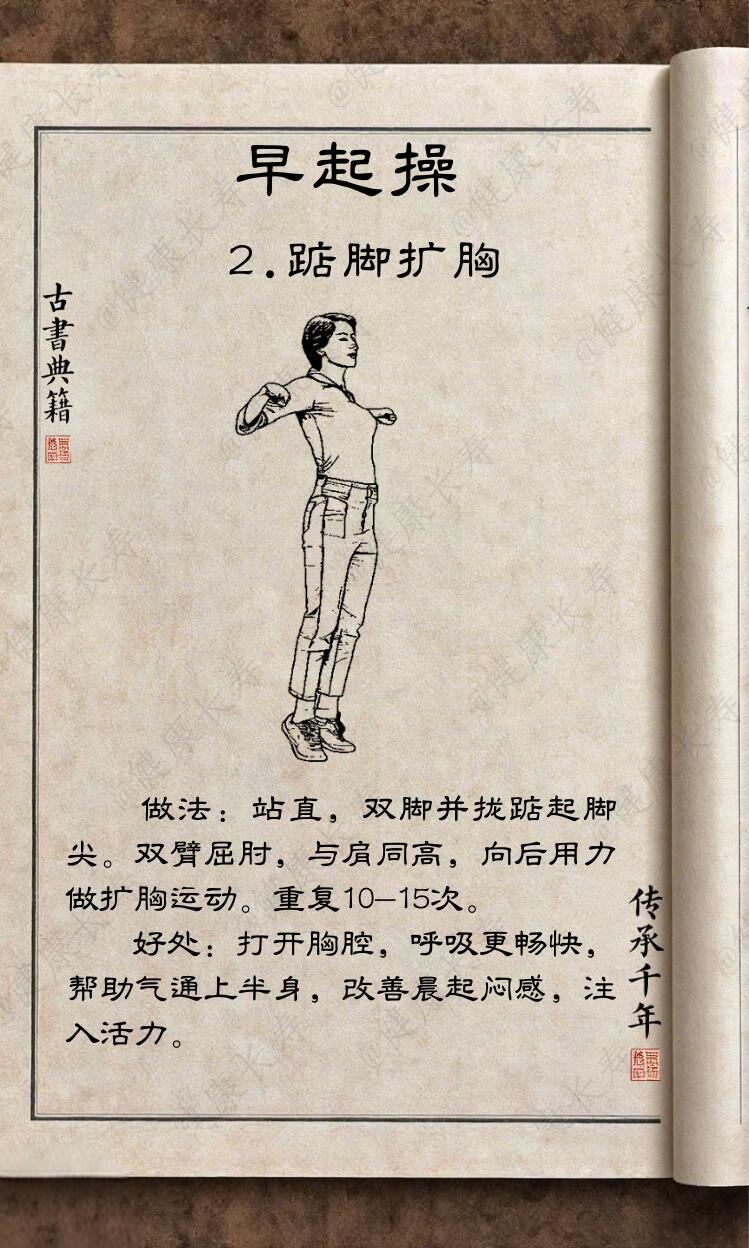 早起操
2.踮脚扩胸
古書典籍
做法：站直，双脚并拢踮起脚
尖。双臂屈肘，与肩同高，向后用力
做扩胸运动。重复10—15次。
好处：打开胸腔，呼吸更畅快，
帮助气通上半身，改善晨起闷感，注
入活力。
传承千年
@健康长寿